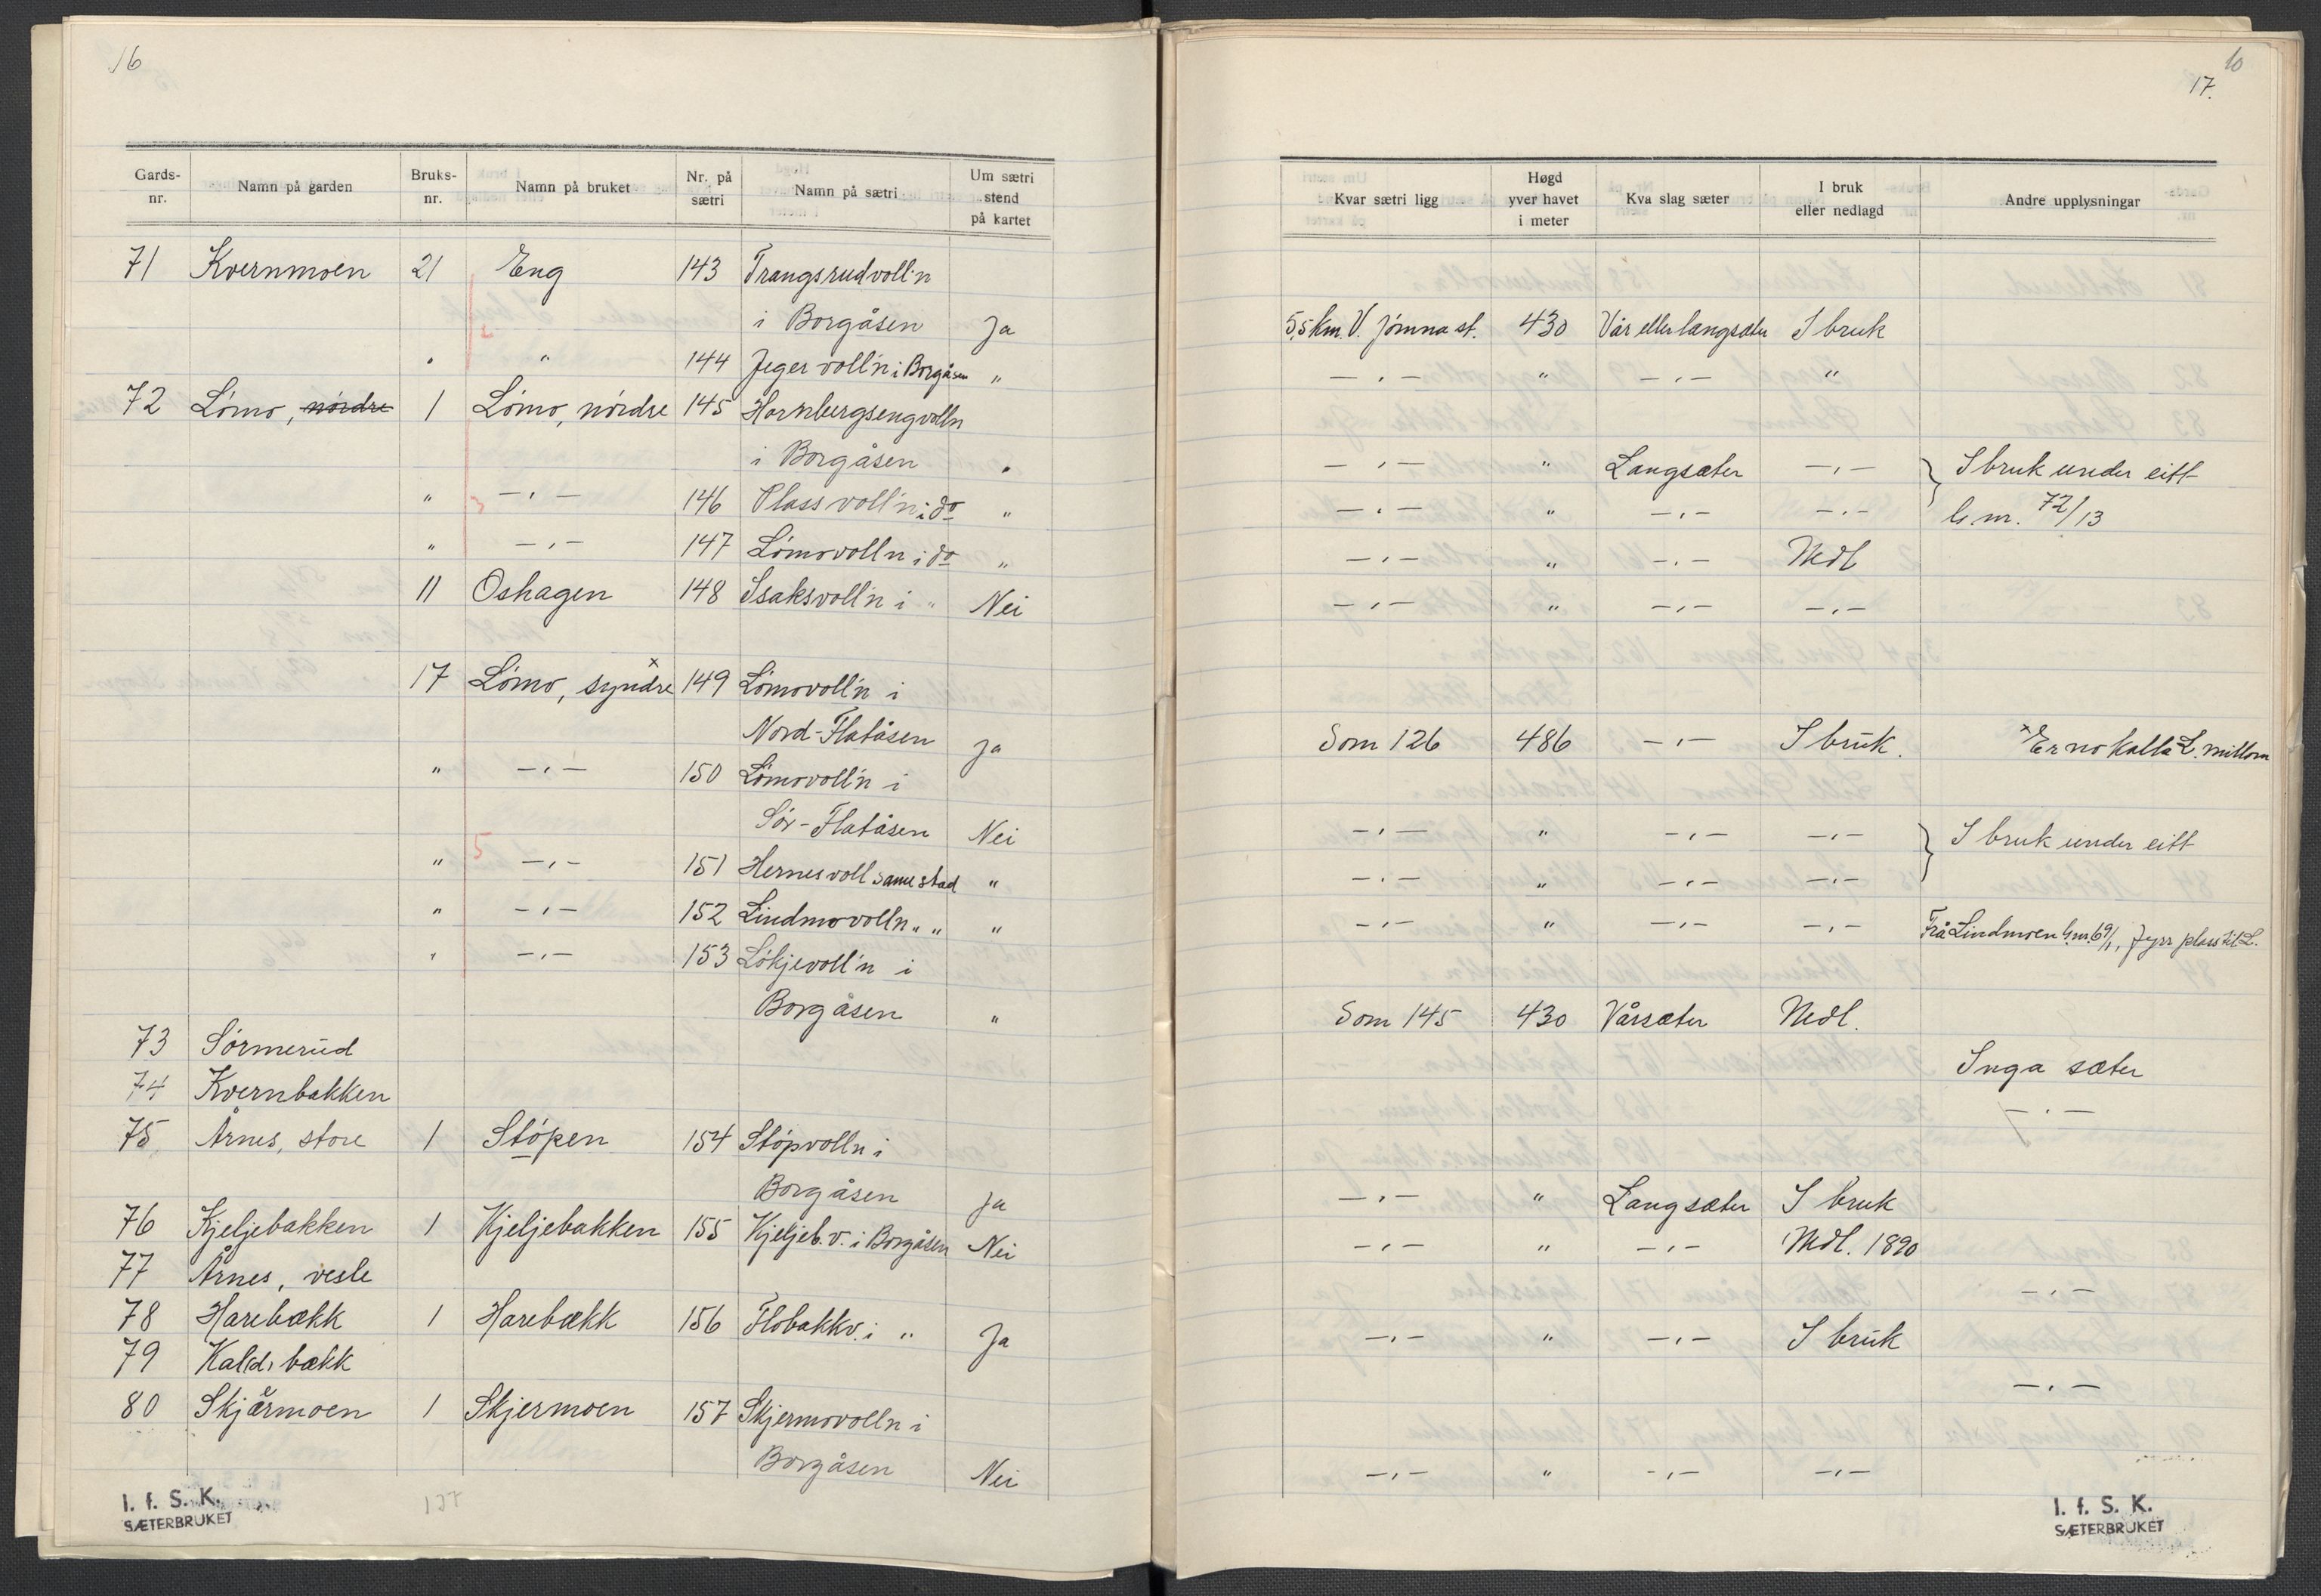 16
Gards-nr. | Namn på garden | Bruks-nr. | Namn på bruket | Nr. på sætri | Namn på sætri | Um sætri stend på kartet
71 Kvernmoen 21 Eng 143 Trangsrudvoll'n
i Borgåsen Ja
" " 144 Jegervoll'n i Borgåsen "
72 Lómo, nórdre 1 Lómo, nórdre 145 Hornbergsengvolln
i Borgåsen "
" —"— 146 Plassvoll'n i do "
" —"— 147 Lómovoll'n i do "
11 Oshagen 148 Isaksvoll'n i " Nei
17 Lómo, syndre x 149 Lómovoll'n i
Nord-Flatåsen Ja
" —"— 150 Lómovoll'n i
Sór-Flatåsen Nei
" —"— 151 Hernesvoll same stad "
" —"— 152 Lindmovolln " " "
" —"— 153 Lókjevoll'n i
Borgåsen "
73 Sórmerud
74 Kvernbakken
75 Årnes, store 1 Stópen 154 Stópvolln i
Borgåsen Ja
76 Kjeljebakken 1 Kjeljebakken 155 Kjeljeb.v. i Borgåsen Nei
77 Årnes, vesle
78 Harebækk 1 Harebækk 156 Flobakkv. i " Ja
79 Kaldbækk
80 Skjærmoen 1 Skjermoen 157 Skjermovolln i
Borgåsen Nei
I. f. S. K.
SÆTERBRUKET
137
10
17.
Kvar sætri ligg | Høgd yver havet i meter | Kva slag sæter | I bruk eller nedlagd | Andre upplysningar
5,5 km. V. Jómna st. 430 Vår eller langsæter I bruk
—"— " —"— "
—"— " Langsæter —"— } I bruk under eitt
—"— " —"— —"— b.nr. 72/13
—"— " —"— Nedl
—"— " —"— —"—
Som 126 486 —"— I bruk. x Er no kalla L. millom
—"— " —"— —"— } I bruk under eitt
—"— " —"— —"—
—"— " —"— —"— Frå Lindmoen b.nr. 69/1, fyrr plass til L.
Som 145 430 Vårsæter Nedl.
Inga sæter
—"—
—"— " Langsæter I bruk
—"— " —"— Nedl. 1890
—"—
—"— " —"— I bruk
—"—
—"— " —"— —"—
I. f. S. K.
SÆTERBRUKET